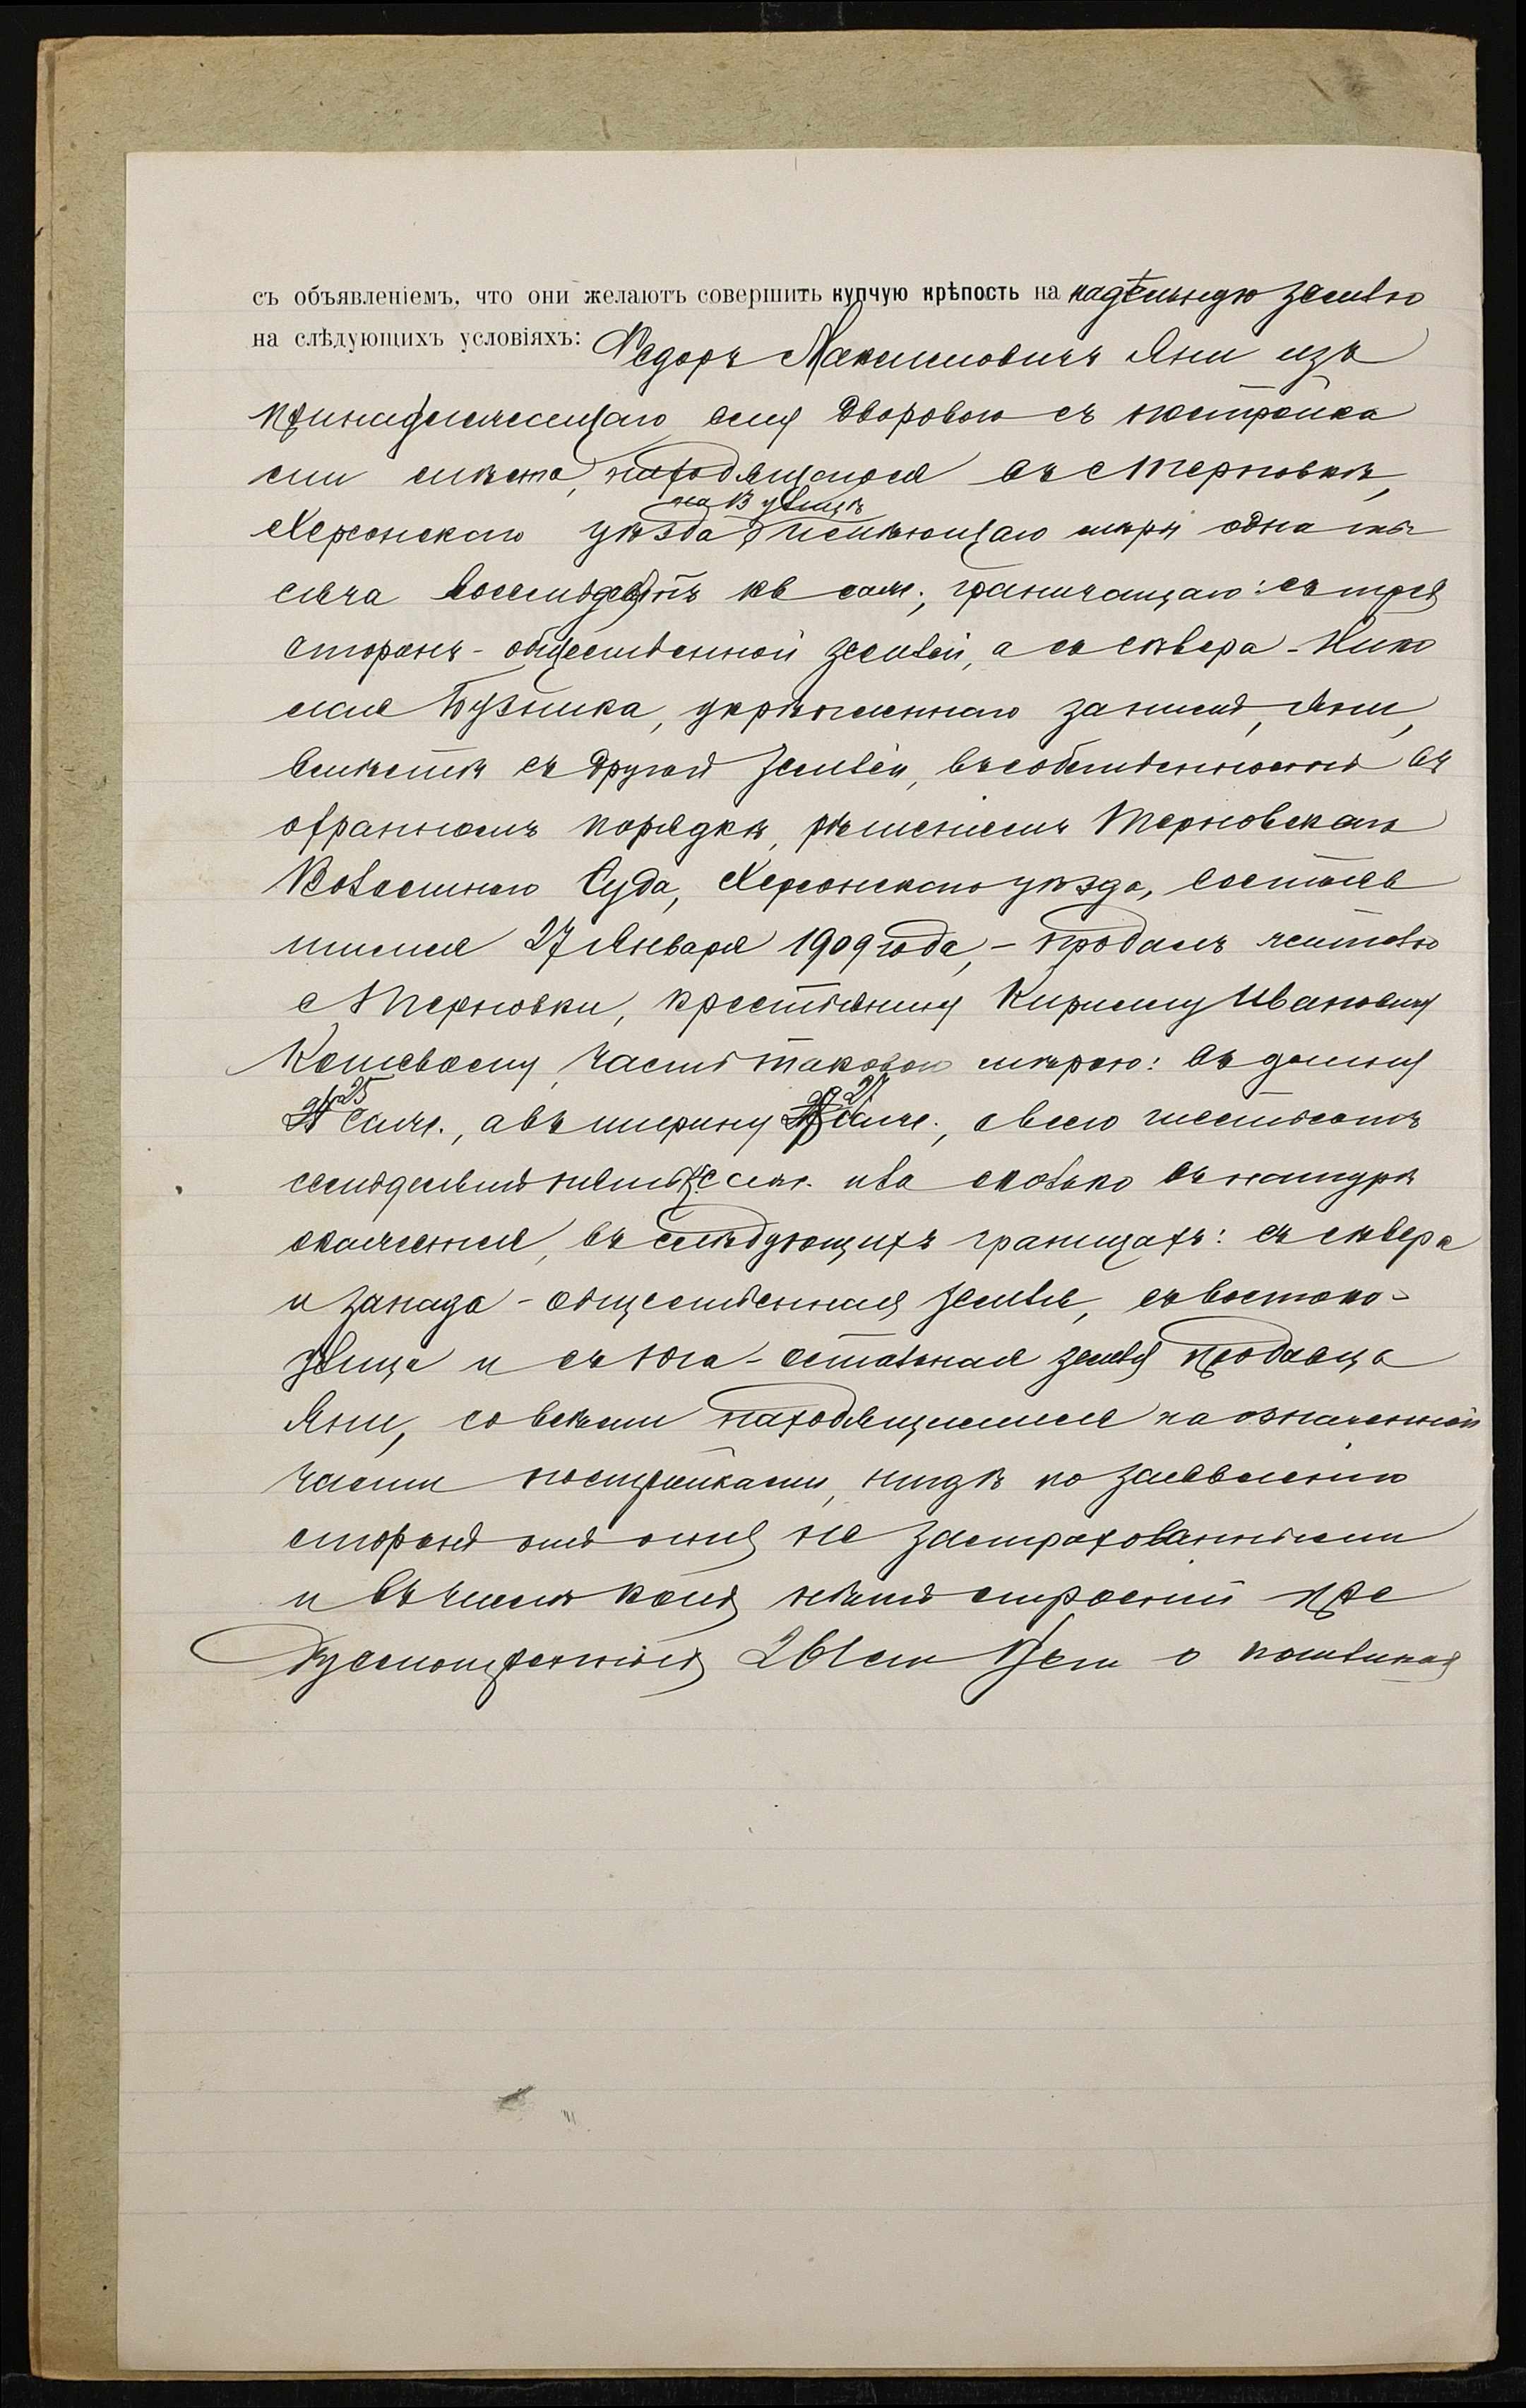 съ объявленіемъ, что они желаютъ совершить купчую крѣпость на надѣльную землю
на слѣдующихъ условіяхъ: Федоръ Максимовичъ Яни изъ
принадлежащаго ему дворового съ постройка
ми мѣста, находящагося въ с Терновкѣ,
на улицѣ
Херсонскаго уѣзда, имѣющаго мѣры одна ты
сяча восемьдесятъ кв саж., граничащаго: съ трехъ
сторонъ - общественной землей, а съ сѣвера - Нико
лая Бузника, укрѣпленнаго за нимъ, Яни,
вмѣстѣ съ другой землей, въ собственность въ
охранномъ порядкѣ, рѣшеніемъ Терновскаго
Волостнаго Суда, Херсонскаго уѣзда, состояв
шимся 27 Января 1909 года, - продалъ жителю
с Терновки, крестьянину Кириллу Ивановичу
Кошевому, часть такового мѣрою: въ длину
25 саж., а въ ширину 27 саж., а всего шестьсотъ
семьдесятъ пять к. саж. или сколько въ натурѣ
окажется, въ слѣдующихъ границахъ: съ сѣвера
и запада - общественная земля, съ востока -
улица и съ юга - остальная земля продавца
Яни, со всѣми находящимися на означенной
части постройками, нигдѣ по заявленію
сторонъ отъ огня не застрахованными
и въ числѣ коихъ нѣтъ строеній пре
дусмотрѣнныхъ 261 ст Уст о пошлинахъ